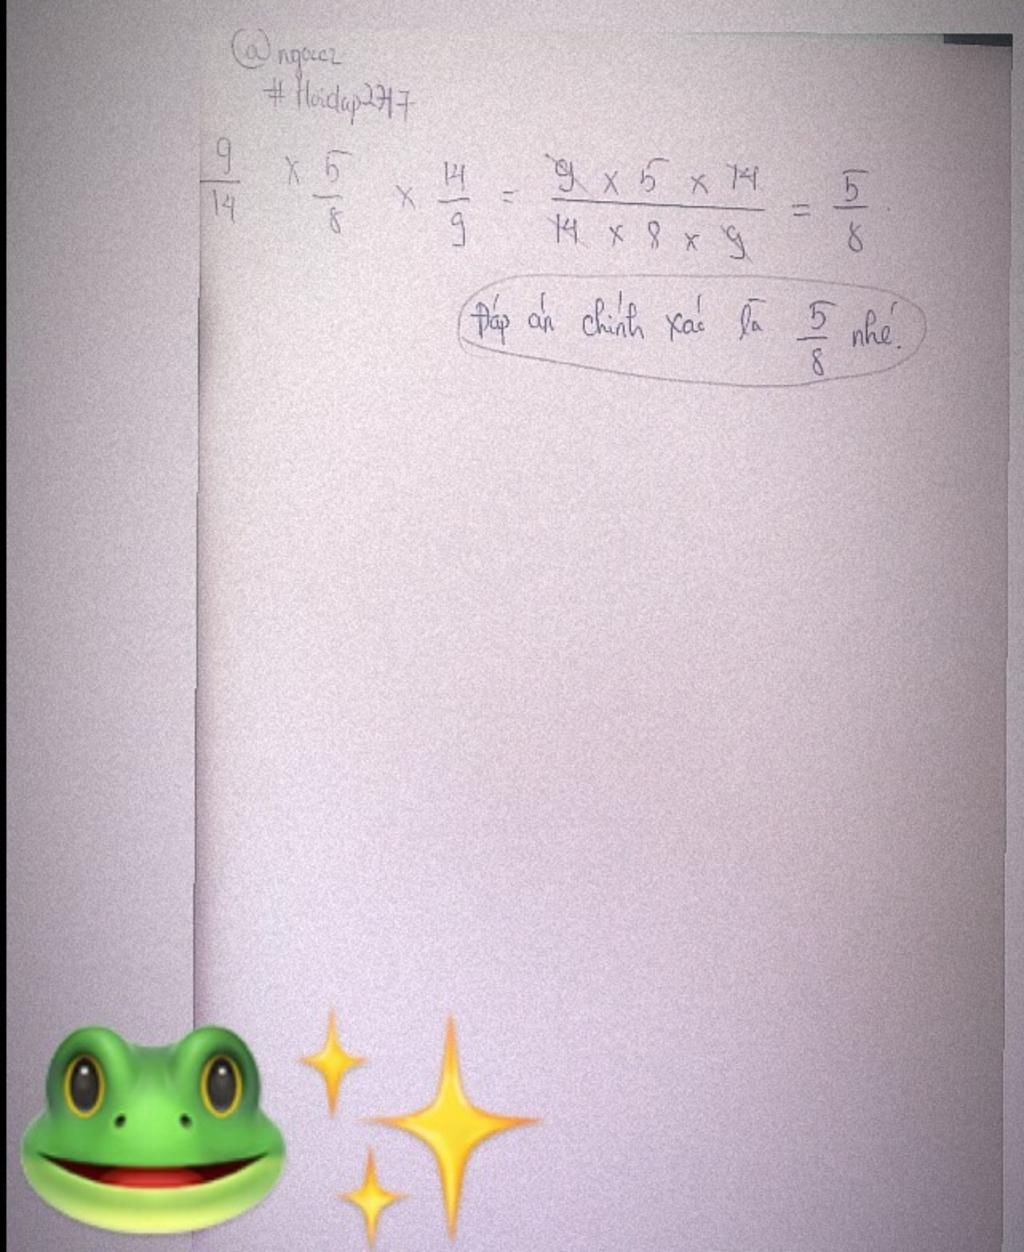 @ngọccz
#Hoidap247
9/14 × 5/8 × 14/9 = 9 × 5 × 14 / 14 × 8 × 9 = 5/8.
Đáp án chính xác là 5/8 nhé.